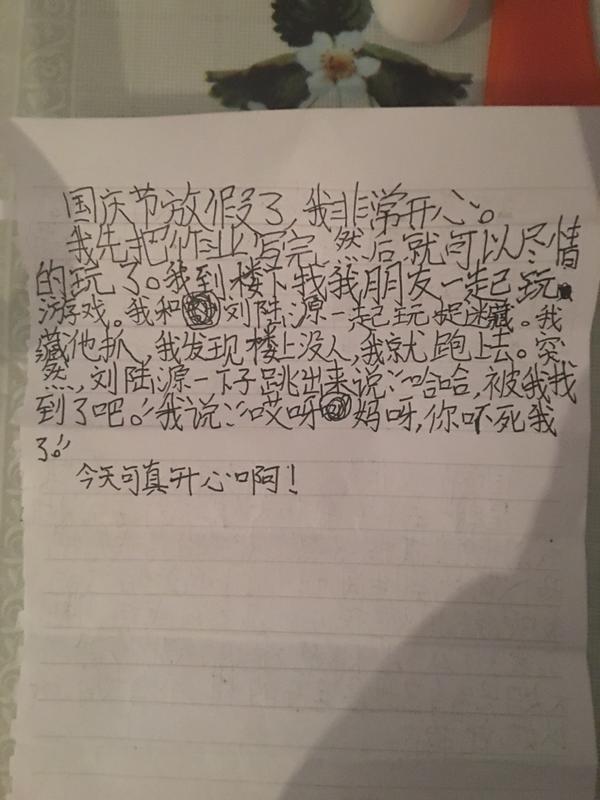 国庆节放假了,我非常开心。
我先把作业写完,然后就可以尽情
的玩了。我到楼下找我朋友一起玩
游戏。我和刘陆源一起玩捉迷藏。我
藏他抓,我发现楼上没人,我就跑上去。突
然,刘陆源一下子跳出来说:“哈哈,被我找
到了吧。”我说:“哎呀妈呀,你吓死我
了。”
今天可真开心啊!